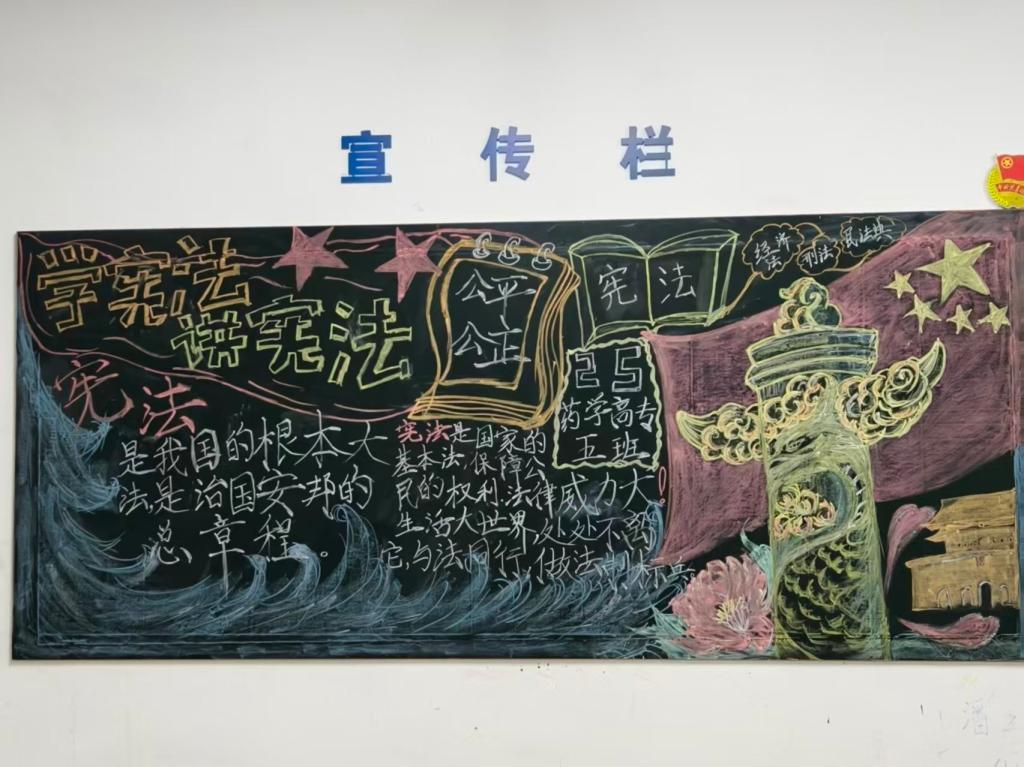 宣传栏
学宪法
讲宪法
宪法
是我国的根本大
法是治国安邦的
总章程。
公平
公正
宪法
经济
法
刑法
民法典
25
药学高专
五班
宪法是国家的
基本法,保障公
民的权利法律威力大!
生活大世界,处处不离
它,与法同行,做法制标兵